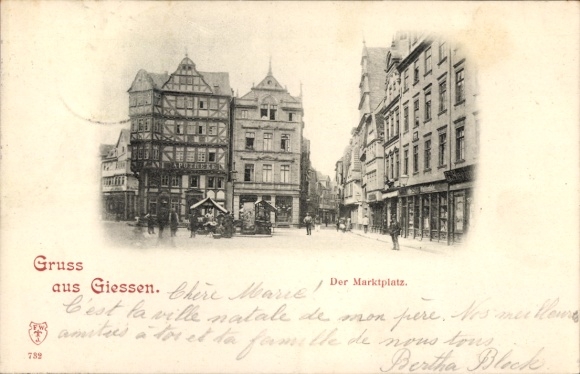 Gruss
aus Giessen.
Der Marktplatz.
Chère Marie!
C'est la ville natale de mon père. Nos meilleures
amitiés à toi et ta famille de nous tous.
Bertha Block
732